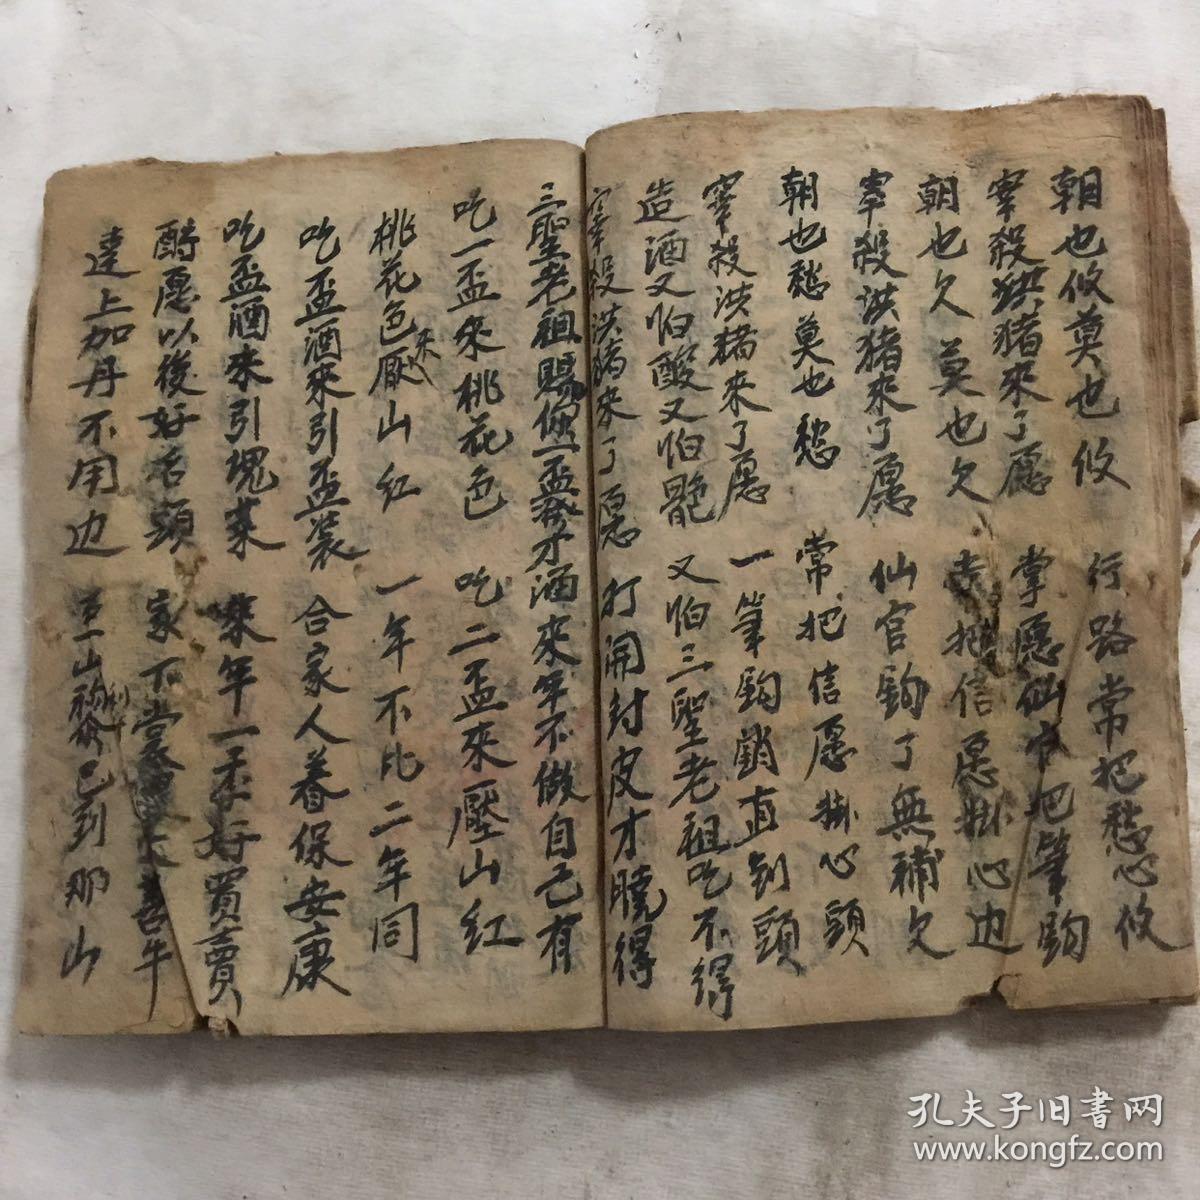 朝也攸莫也攸 行路常把愁心攸
宰殺洪猪來了愿 掌愿仙官把筆鈎
朝也欠莫也欠 把信愿掛心边
宰殺洪猪來了愿 仙官鈎了無補欠
朝也愁莫也愁 常把信愿掛心頭
宰殺洪猪來了愿 一筆鈎銷直到頭
造酒又怕酸又怕 又怕三聖老祖吃不得
宰殺洪猪來了愿 打開封皮才曉得
三聖老祖賜你一盃發才酒來年不做自己有
吃一盃來桃花色 吃二盃來壓山紅
桃花色來厭山紅 一年不比二年同
吃盃酒來引盃裝 合家人眷保安康
吃盃酒來引塊来 來年一季好買賣
酧愿以後好石頭 家下
達上加丹不用边 山 已到那山
孔夫子旧书网
www.kongfz.com